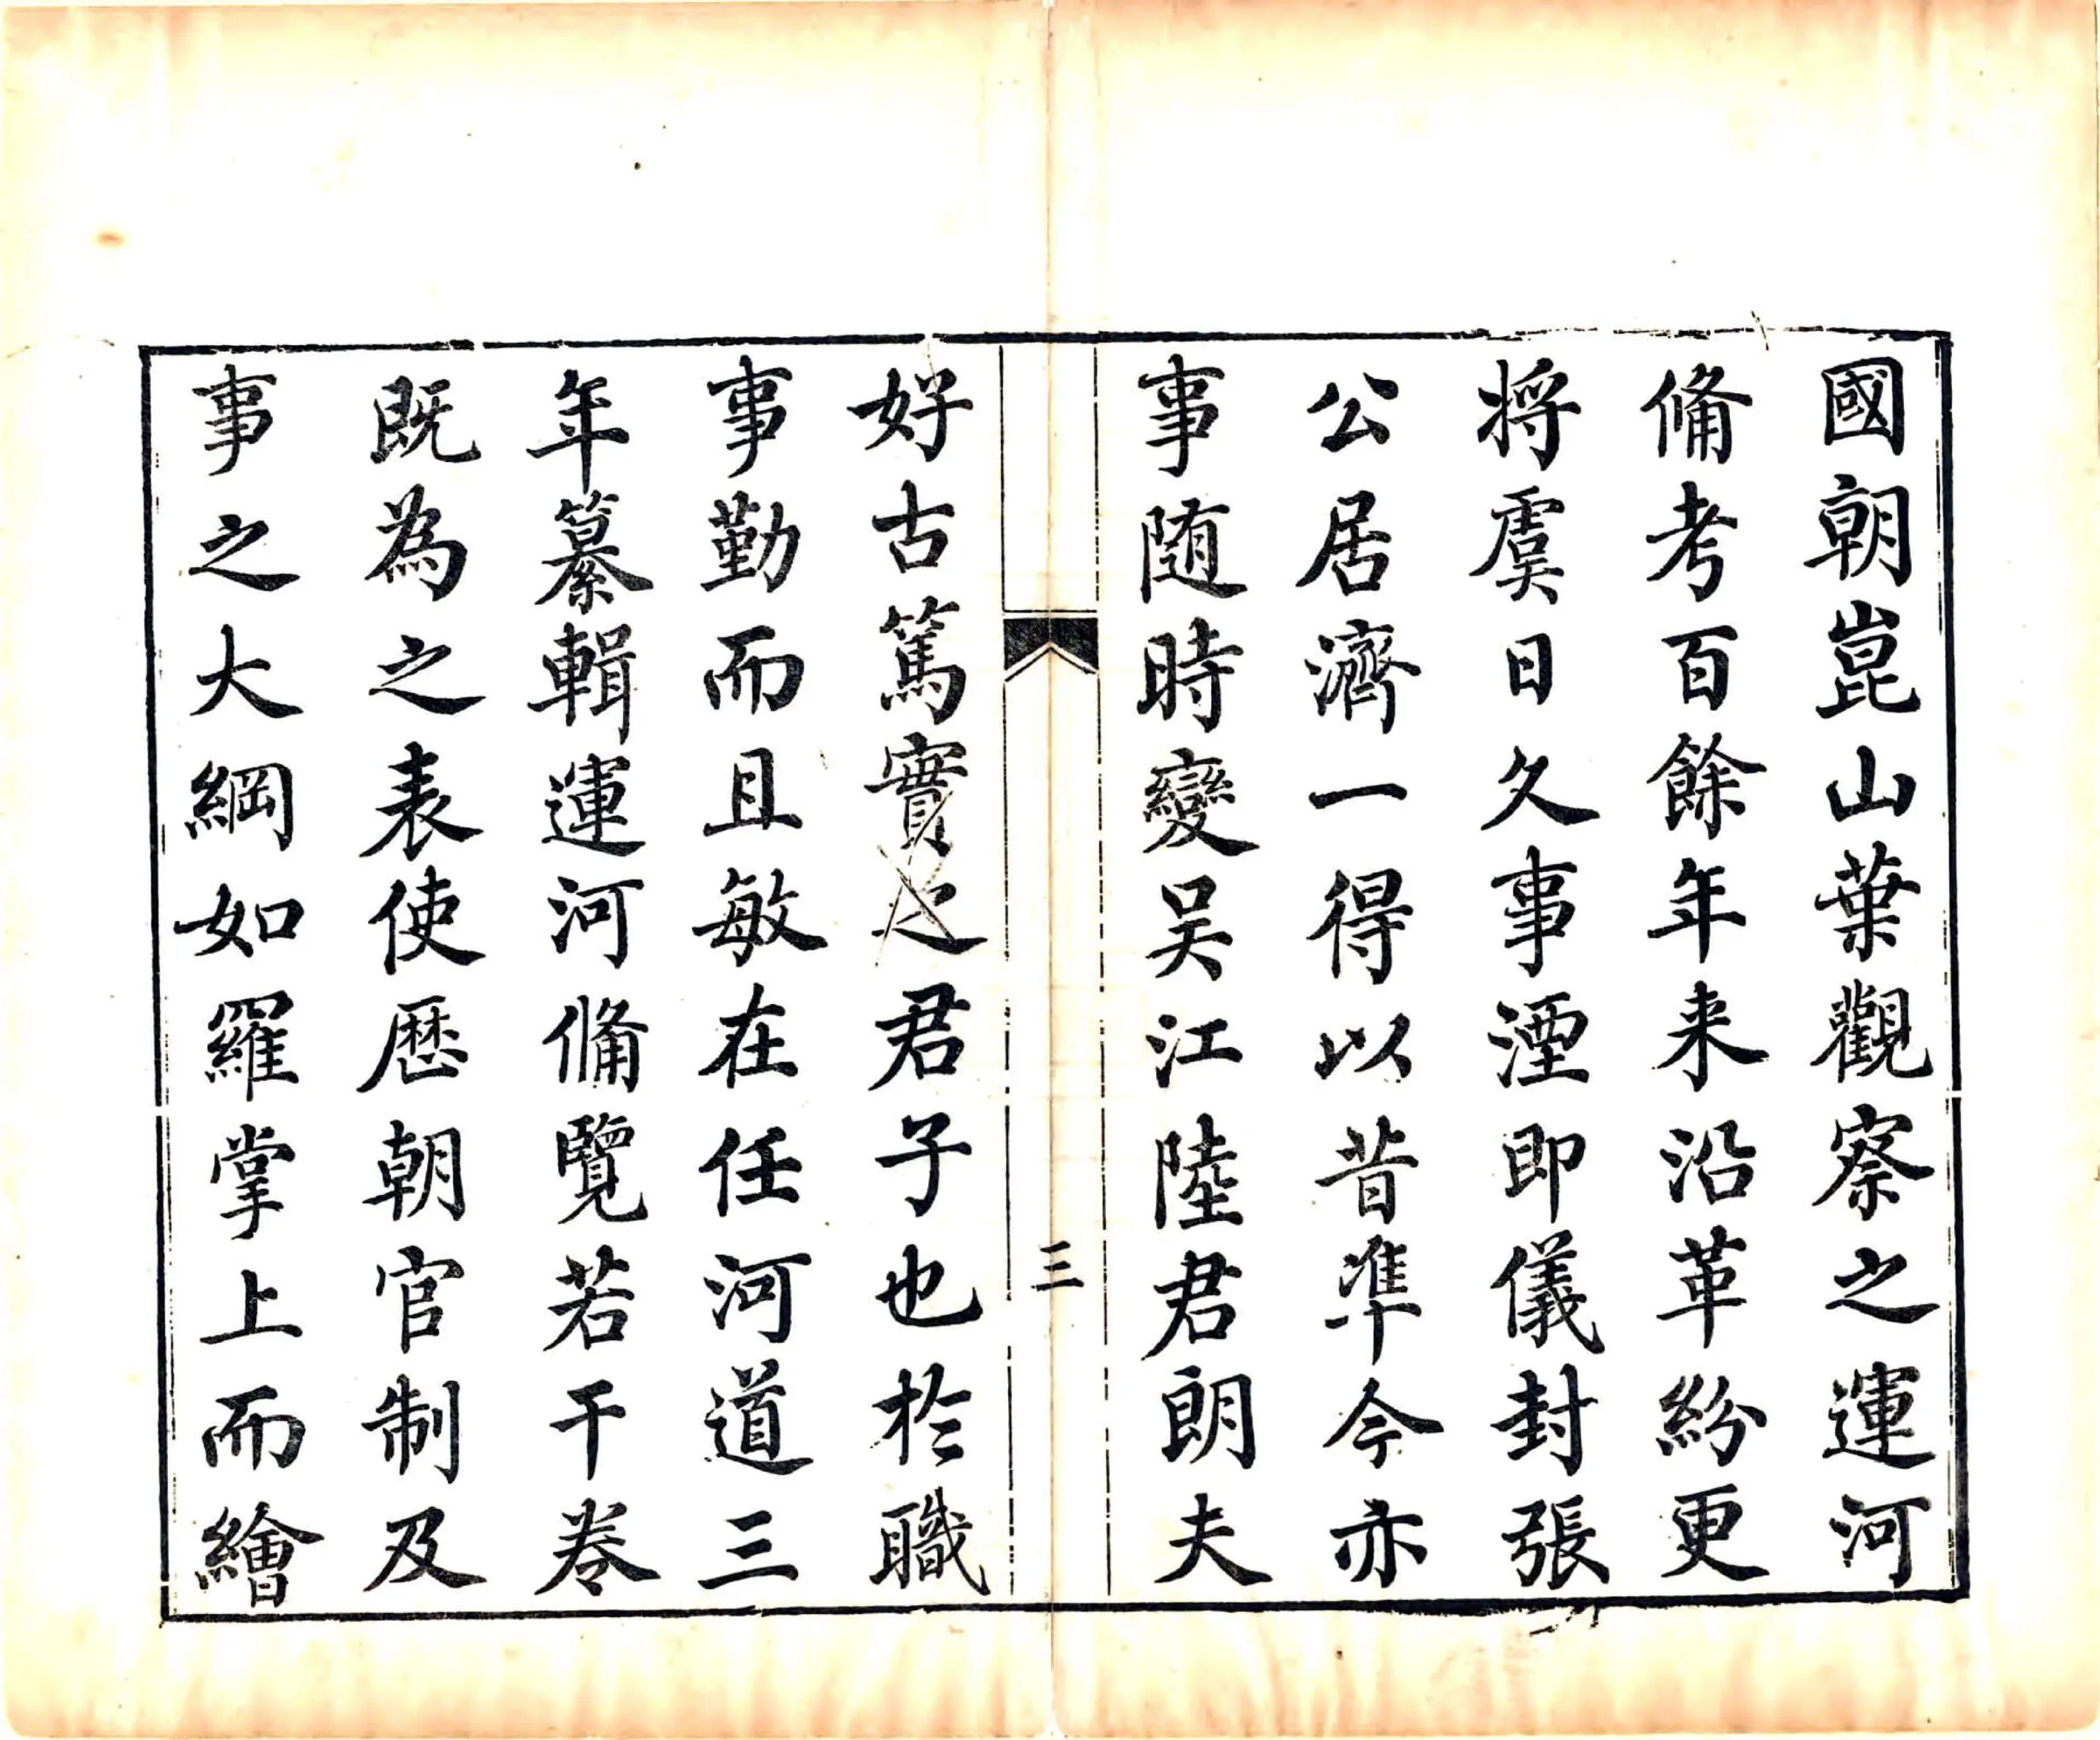 國朝崑山葉觀察之運河
俻考百餘年来沿革紛更
将虞日久事湮即儀封張
公居濟一得以昔準今亦
事随時變吴江陸君朗夫
三
好古篤實之君子也於職
事勤而且敏在任河道三
年纂輯運河俻覽若干卷
既為之表使厯朝官制及
事之大綱如羅掌上而繪